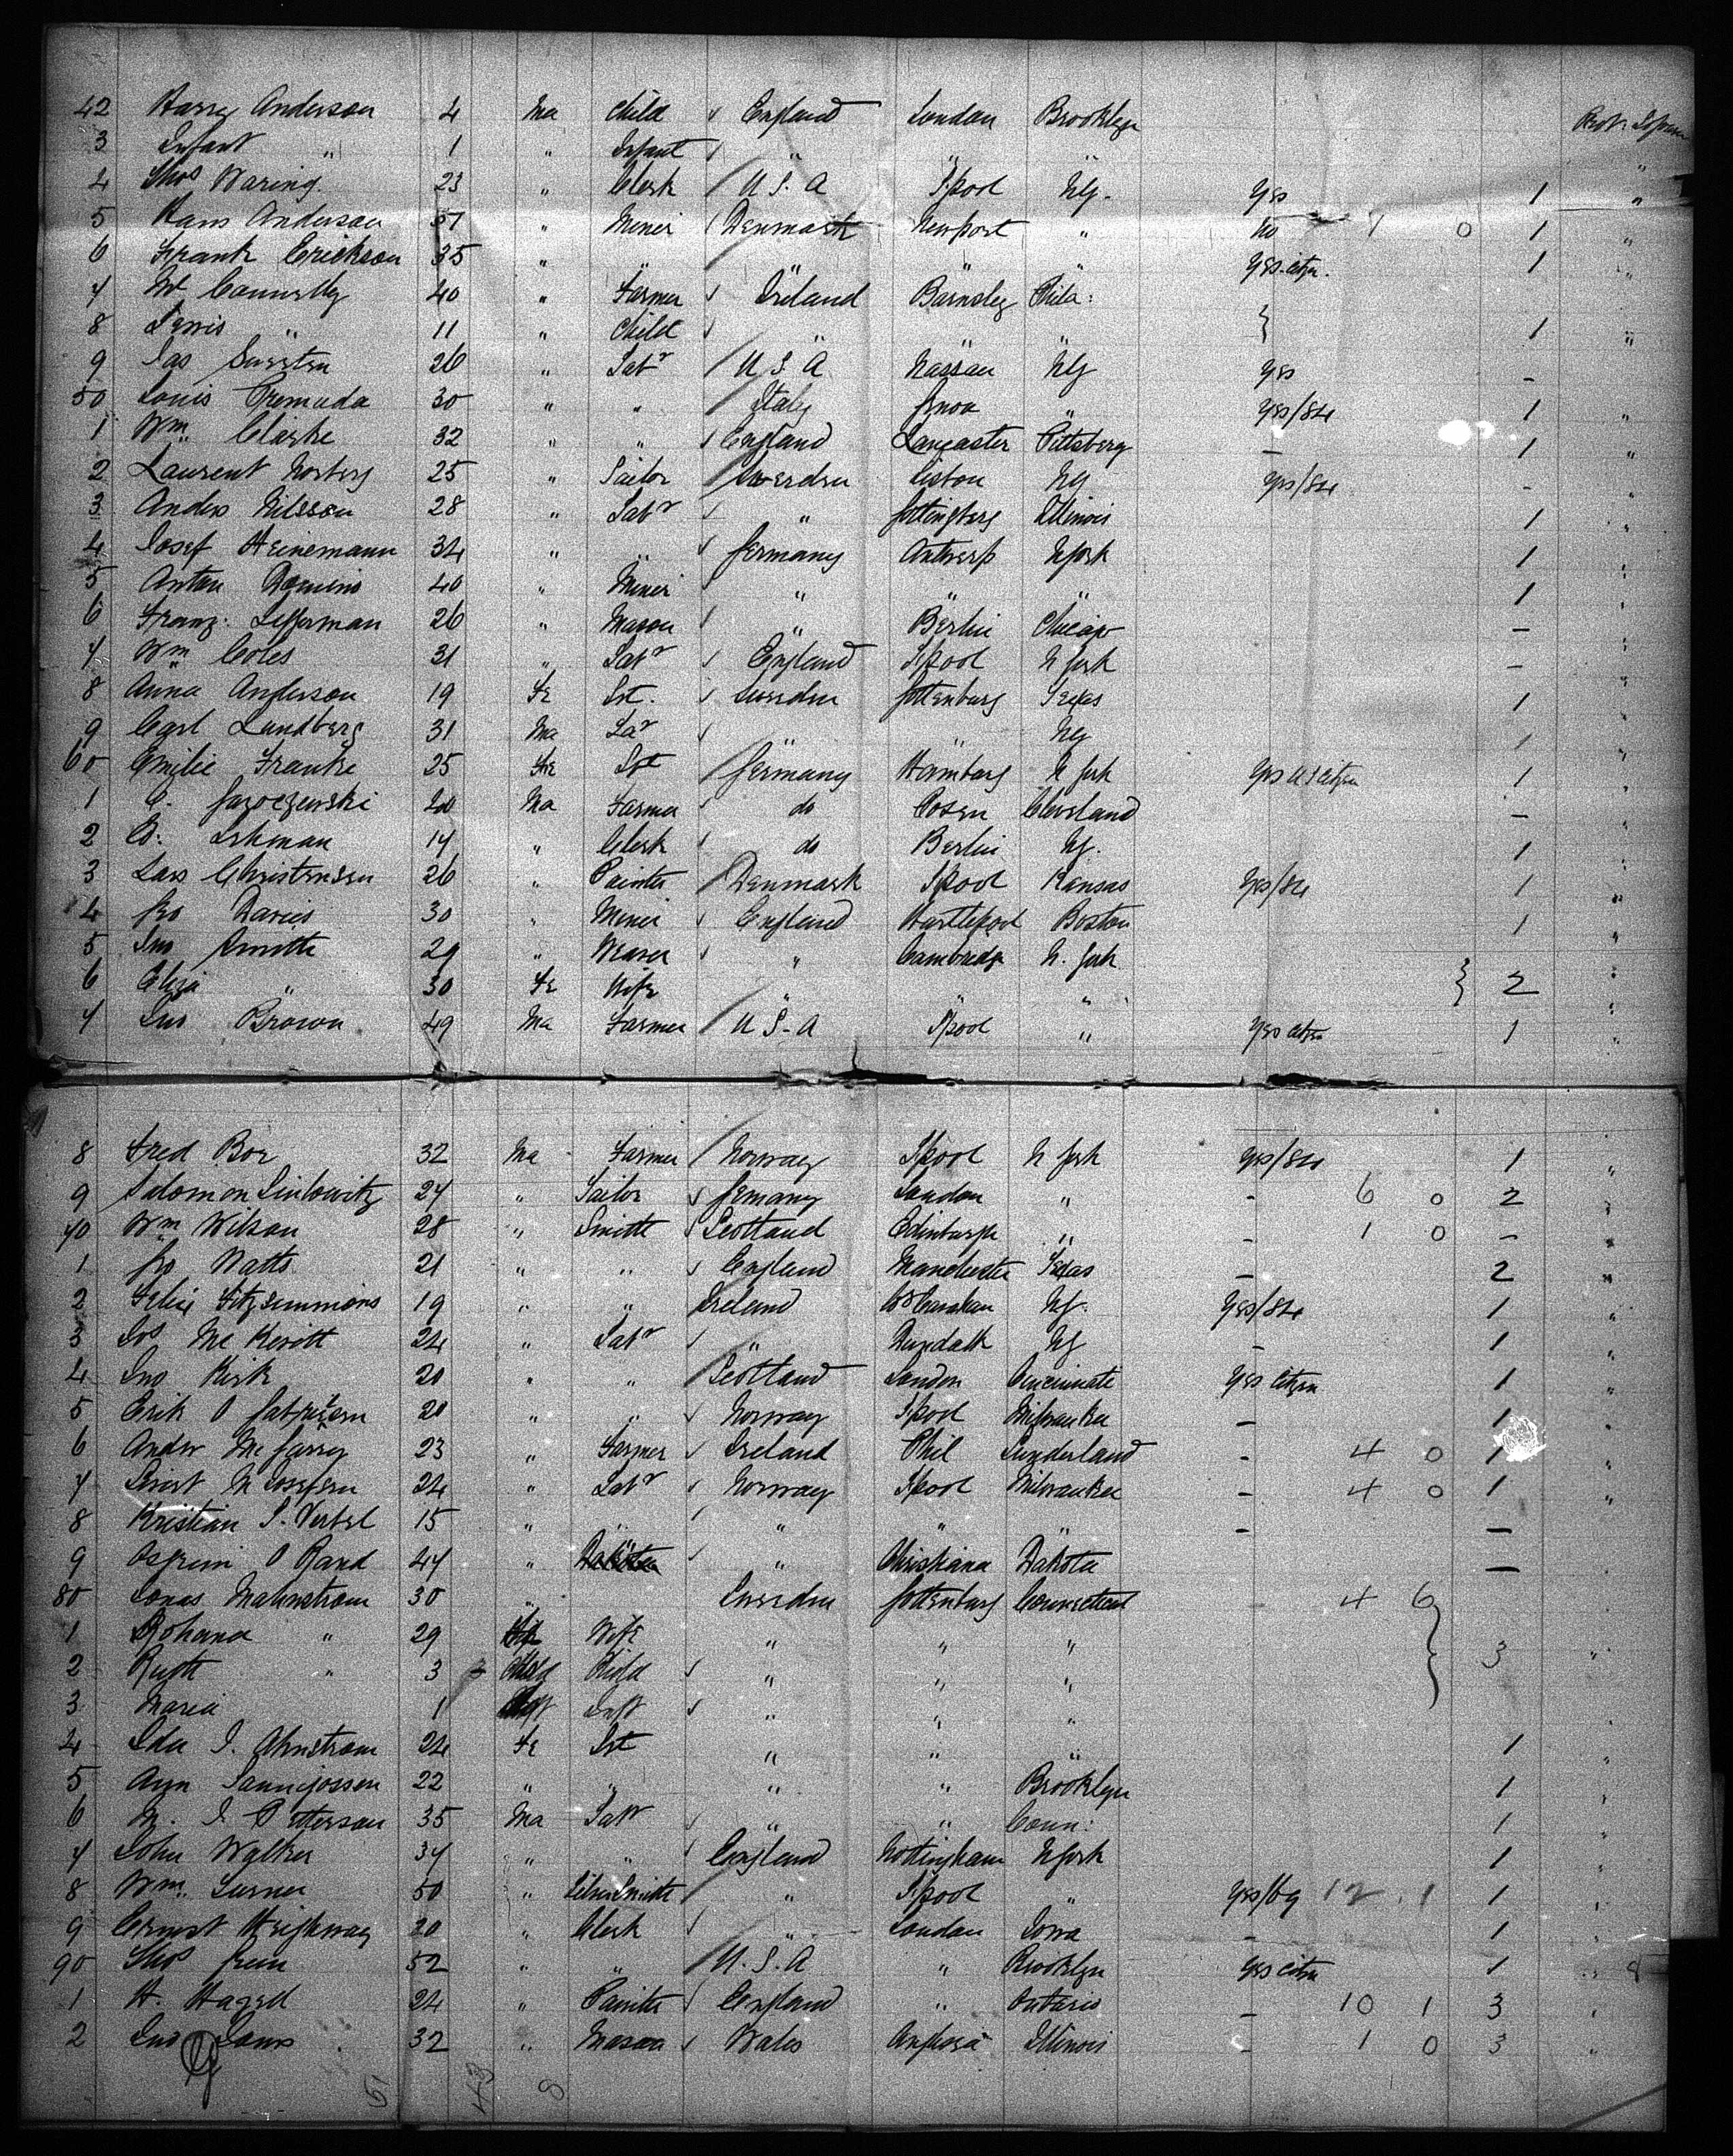 42 Harry Anderson 4 Ma Child " England London Brooklyn
3 Infant " 1 " Infant " " "
4 Thos Waring 23 " Clerk U.S.A L'pool NY. Yes 1 "
5 Hans Anderson 37 " Miner Denmark Newport " No 1 0 1 "
6 Frank Erickson 35 " " " " " Yes citzn. 1 "
7 M Connolly 40 " Farmer Ireland Barnsley Phila:
8 Lewis " 11 " Child " " " 1 "
9 Jas 26 " Labr U S A Nassau NY Yes - "
50 Louis Premuda 30 " " Italy Genoa " Yes/84 1 "
1 Wm Clarke 32 " " England Lancaster Pittsberg - 1 "
2 Laurent Norberg 25 " Sailor Sweden Liston NY Yes/84 - "
3 Anders Nilsson 28 " Labr " Gottingberg Illinois 1 "
4 Josef Heinemann 34 " " Germany Antwerp N York 1 "
5 Anton 40 " Miner " " " 1 "
6 Franz: Lefferman 26 " Mason " Berlin Chicago - "
7 Wm Coles 31 " Labr England L'pool N York - "
8 Anna Anderson 19 Fe Svt. Sweden Gottenburg Texas 1 "
9 Carl Lundberg 31 Ma Lar " " NY 1 "
60 Emilie Franke 25 Fe Svt Germany Hamburg N York Yes U S Citzn 1 "
1 C. 20 Ma Farmer do Posen Cleveland - "
2 B: Lehman 17 " Clerk do Berlin NY. 1 "
3 Lars Christensen 26 " Painter Denmark L'pool Kansas Yes/84 1 "
4 Geo Davies 30 " Miner England Hartlepool Boston 1 "
5 Jno Smith 29 " Weaver " Cambridge N. York
6 Eliza " 30 Fe Wife " " " 2 "
7 Jno Brown 49 Ma Farmer U S-A L'pool " Yes citzn 1 "
8 Fred Boe 32 Ma Farmer Norway L'pool N York Yes/84 1 "
9 Salomon 27 " Tailor Germany London " - 6 0 2 "
70 Wm Wilson 28 " Smith Scotland Edinburgh " - 1 0 - "
1 Geo Watts 21 " " England Manchester Texas - 2 "
2 Felix Fitzsimmons 19 " " Ireland NY. Yes/84 1 "
3 Jos McKevitt 24 " Labr " Dundalk NY - 1 "
4 Jno Kirk 20 " " Scotland London Cincinnati Yes Citzn 1 "
5 Erik O 20 " " Norway L'pool Milwaukee - 1 "
6 Andw McGarry 23 " Farmer Ireland Phil Sunderland - 4 0 1 "
7 24 " Labr Norway L'pool Milwaukee - 4 0 1 "
8 Kristian 15 " " " " " - - "
9 O Rand 47 " " Christiana Dakota -
80 Jonas Malmstrom 30 " Sweden Gottenburg Connecticut - 4 6
1 Johana " 29 Wife " " " 3 "
2 Ruth " 3 Child " " "
3 Maria 1 Inft " " "
4 Ida J. Ahnstrom 24 Fe Svt " " " 1 "
5 22 " " " " Brooklyn 1 "
6 M. J. Petterson 35 Ma Labr " " Conn: 1 "
7 John Walker 37 " " England Nottingham N York 1 "
8 Wm. Turner 50 " Silver Smith " L'pool " Yes/69 12 1 1 "
9 Ernest Heighway 20 " Clerk " London Iowa - 1 "
90 Thos Green 52 " " U.S.A " Brooklyn Yes citzn 1 " 8
1 H. Hazell 24 " Painter England " Ontario - 10 1 3 "
2 Jno 32 " Mason Wales Anglesea Illinois - 1 0 3 "
51 43 8